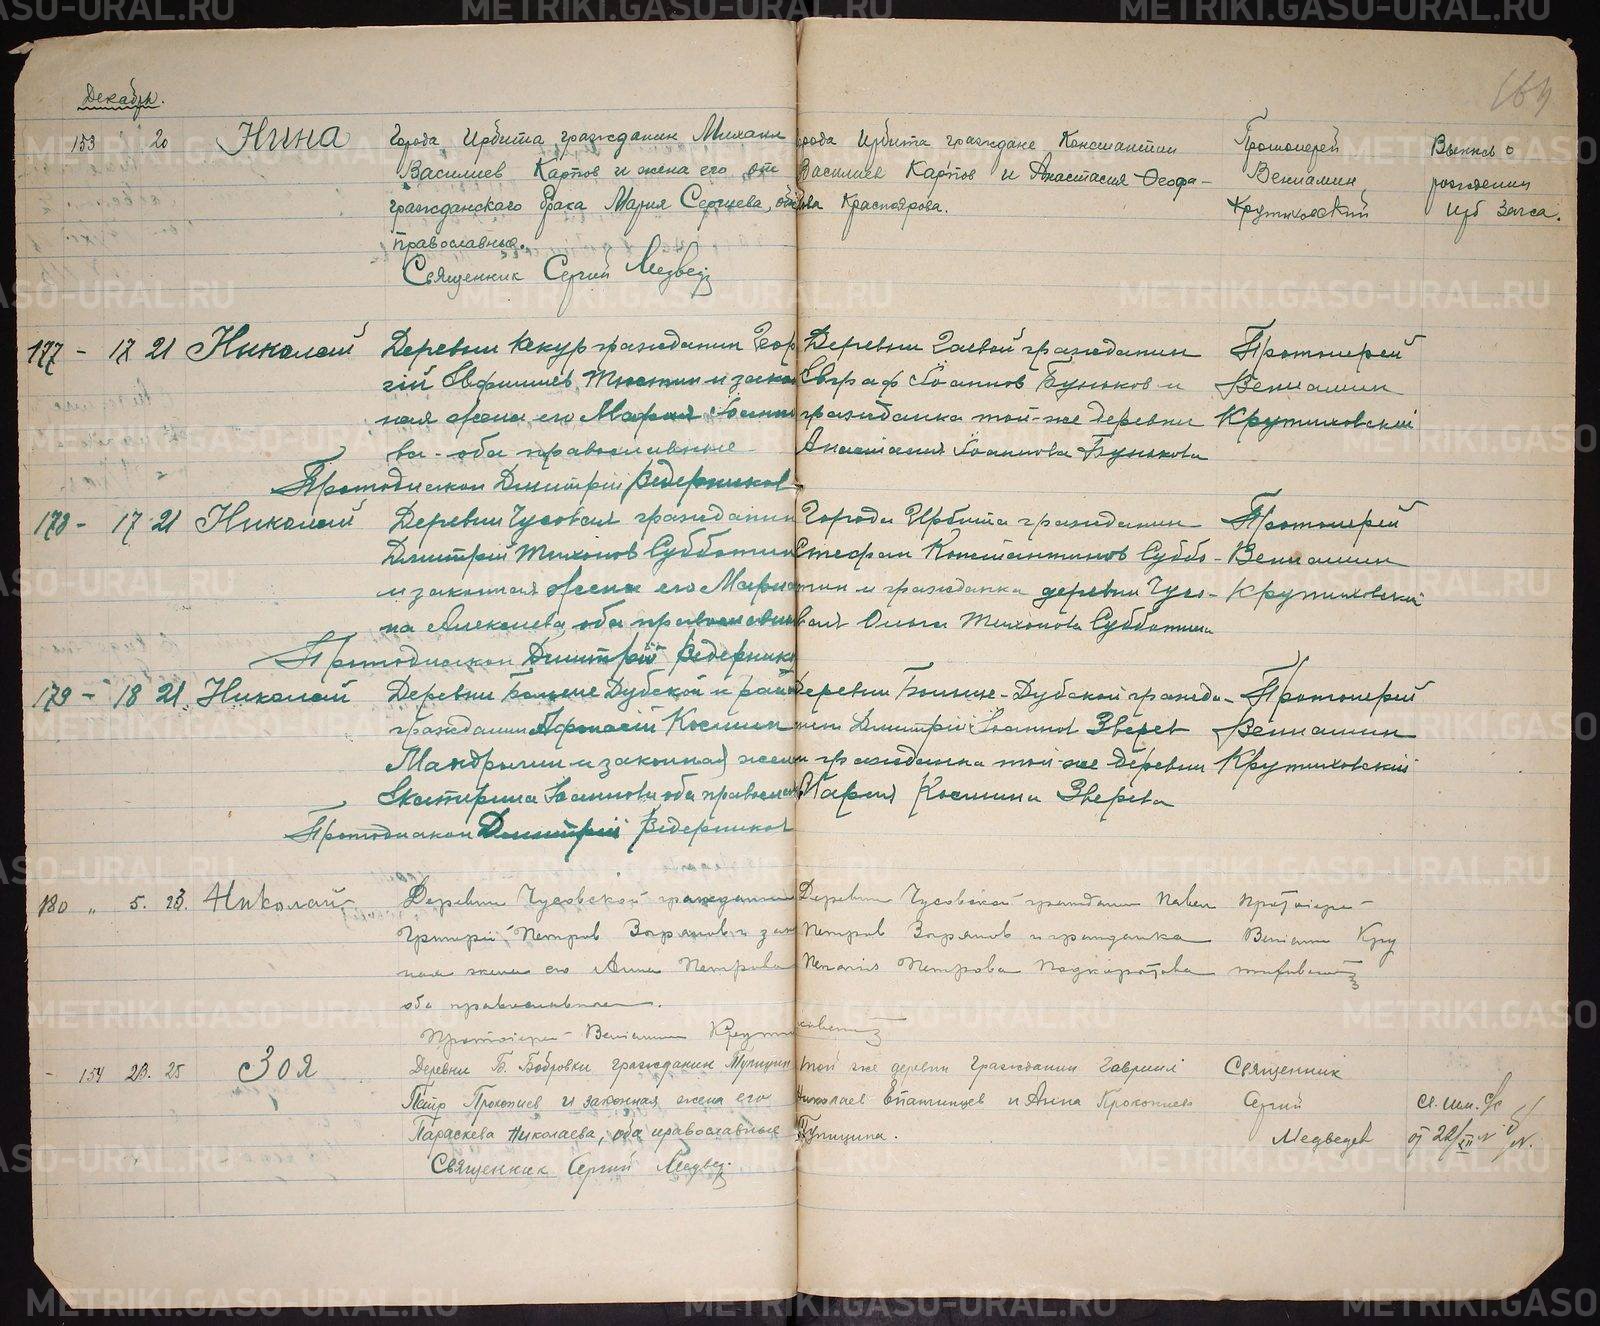 164
Декабрь.
153 20 Нина Города Ирбита гражданин Михаил
Василиев Карпов и жена его от
гражданского брака Мария Сергиева, оба
православные.
Священник Сергий Медведев
города Ирбита граждане Константин
Василиев Карпов и Анастасия Феофа-
нова Красноярова.
Протоиерей
Вениамин
Крутиховский
Выпись о
рождении
Ирб Загса.
177 - 17 21 Николай Деревни Кекур гражданин Геор
гий Евфимиев Тюстин и закон
ная жена его Мария Иоанно
ва - оба православные
Протодиакон Димитрий Ведерников
Деревни Гаевой гражданин
Евграф Иоаннов Буньков и
гражданка той-же деревни
Анастасия Иоаннова Бунькова
Протоиерей
Вениамин
Крутиховский
178 - 17 21 Николай Деревни Чусовая гражданин
Димитрий Тихонов Субботин
и законная жена его Мариа
на Алексиева оба православные
Протодиакон Димитрий Ведерников
Города Ирбита гражданин
Стефан Константинов Суббо-
тин и гражданка деревни Чусо-
вая Ольга Тихонова Субботина
Протоиерей
Вениамин
Крутиховский
179 - 18 21 Николай Деревни Больше Дубской
гражданин Афанасий Космин
Мандрыгин и законная жена
Екатерина Иоаннова оба православ
Протодиакон Димитрий Ведерников
Деревни Больше-Дубской гражда-
нин Димитрий Иоаннов Зверев
и гражданка той-же деревни
Мария Космина Зверева
Протоиерей
Вениамин
Крутиховский
180 " 5. 23. Николай Деревни Чусовской гражданин
Григорий Петров Зырянов и закон
ная жена его Анна Петрова
оба православные.
Протоиерей Вениамин Крутиховский
Деревни Чусовской гражданин Павел
Петров Зырянов и гражданка
Петрова
Протоиерей
Вениамин Кру
тиховский
- 154 23. 25 Зоя Деревни Б. Бобровки гражданин Тупицин
Петр Прокопиев и законная жена его
Параскева Николаева, оба православные
Священник Сергий Медведев
той же деревни гражданин Гавриил
Николаев Епатинцев и Анна Прокопиева
Тупицина.
Священник
Сергий
Медведев
от 22/XII